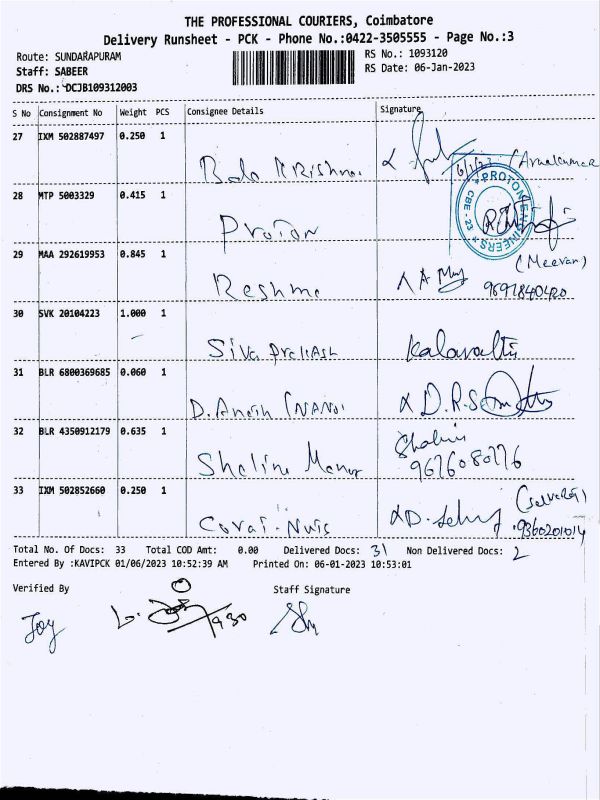 THE PROFESSIONAL COURIERS, Coimbatore
Delivery Runsheet - PCK - Phone No.:0422-3505555 - Page No.:3
Route: SUNDARAPURAM
RS No.: 1093120
Staff: SABEER
RS Date: 06-Jan-2023
DRS No.: DCJB109312003
S No Consignment No Weight PCS Consignee Details Signature
27 IXM 502887497 0.250 1
28 MTP 5003329 0.415 1 Proton
PROTON ENGINEERS CBE-23
29 MAA 292619953 0.845 1 Reshma
(Meeran)
9697840420
30 SVK 20104223 1.000 1 Siva Prakash
31 BLR 6800369685 0.060 1
32 BLR 4350912179 0.635 1
9676080776
33 IXM 502852660 0.250 1
9360201014
Total No. Of Docs: 33 Total COD Amt: 0.00 Delivered Docs: 31 Non Delivered Docs: 2
Entered By :KAVIPCK 01/06/2023 10:52:39 AM Printed On: 06-01-2023 10:53:01
Verified By Staff Signature
Joy